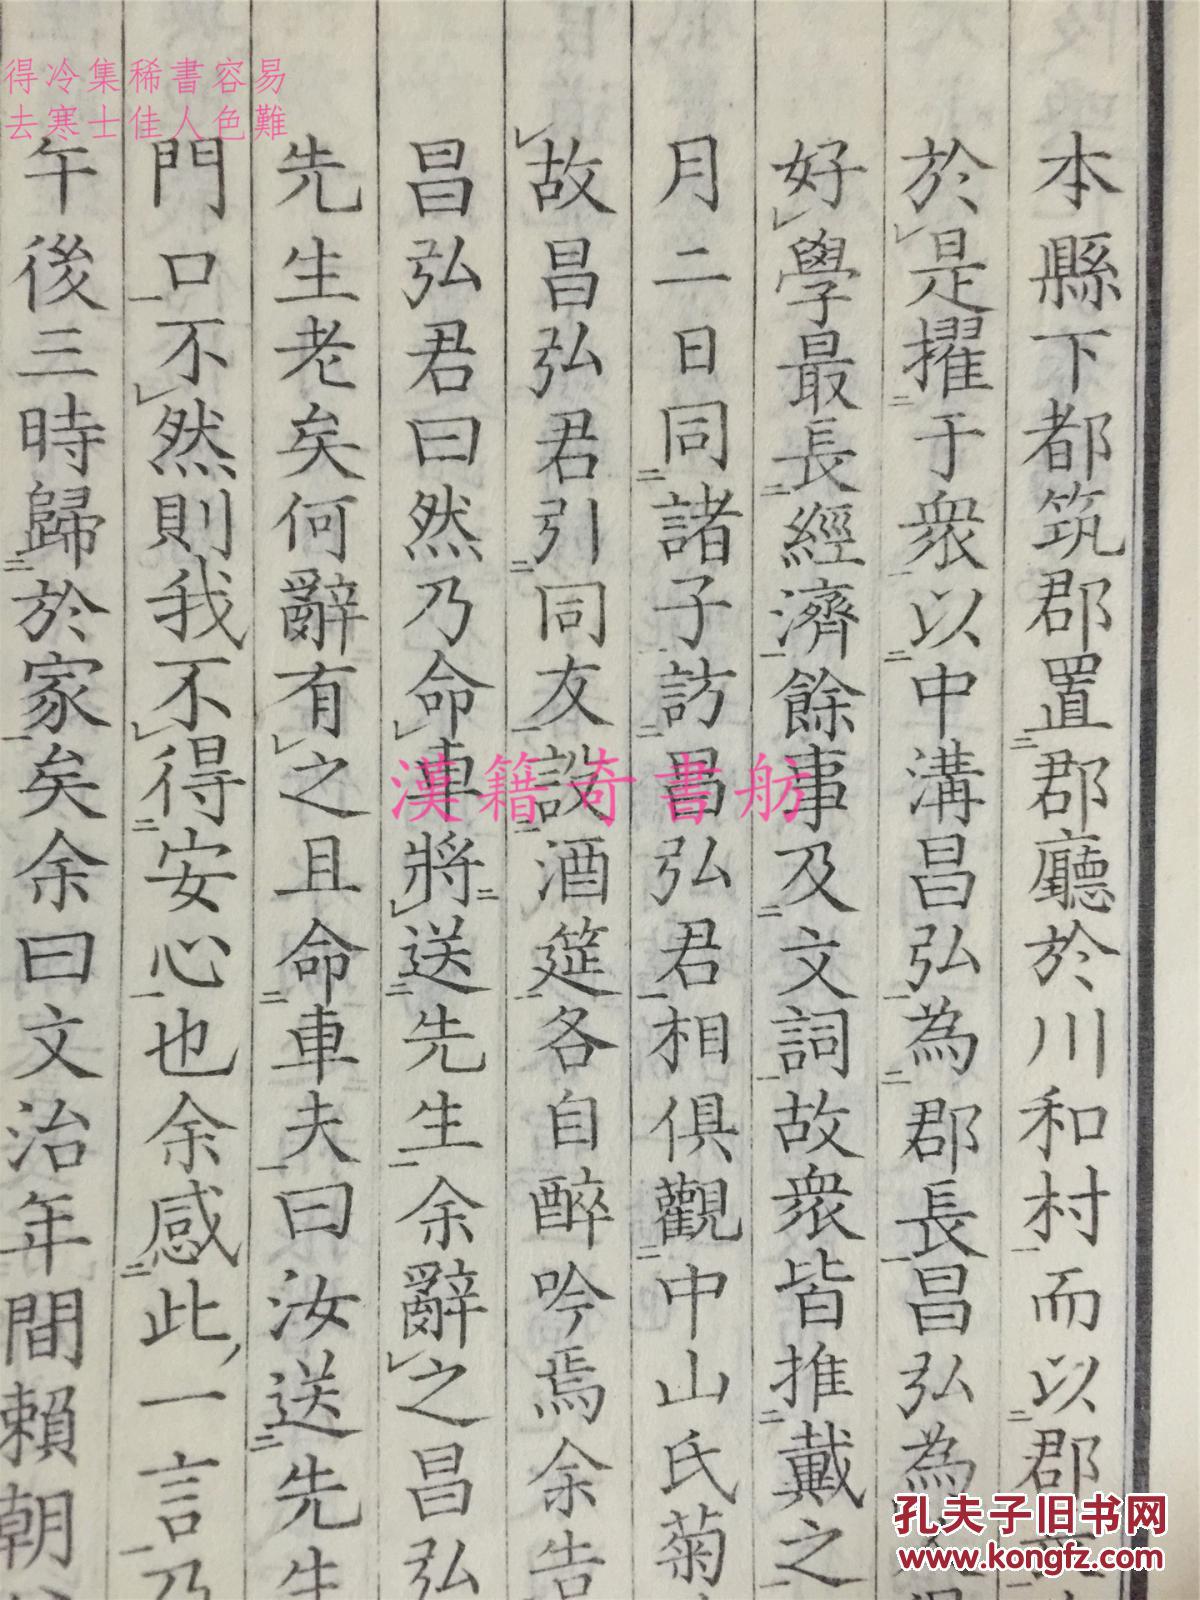 本縣下都筑郡置郡廳於川和村而以郡
於是擢于衆以中溝昌弘為郡長昌弘為
好學最長經濟餘事及文詞故衆皆推戴之
月二日同諸子訪昌弘君相俱觀中山氏菊
故昌弘君引同友設酒筵各自醉吟焉余告
昌弘君曰然乃命車將送先生余辭之昌弘
先生老矣何辭有之且命車夫曰汝送先生
門口不然則我不得安心也余感此一言乃
午後三時歸於家矣余曰文治年間賴朝
得冷集稀書容易
去寒士佳人色難
漢籍奇書舫
孔夫子旧书网
www.kongfz.com